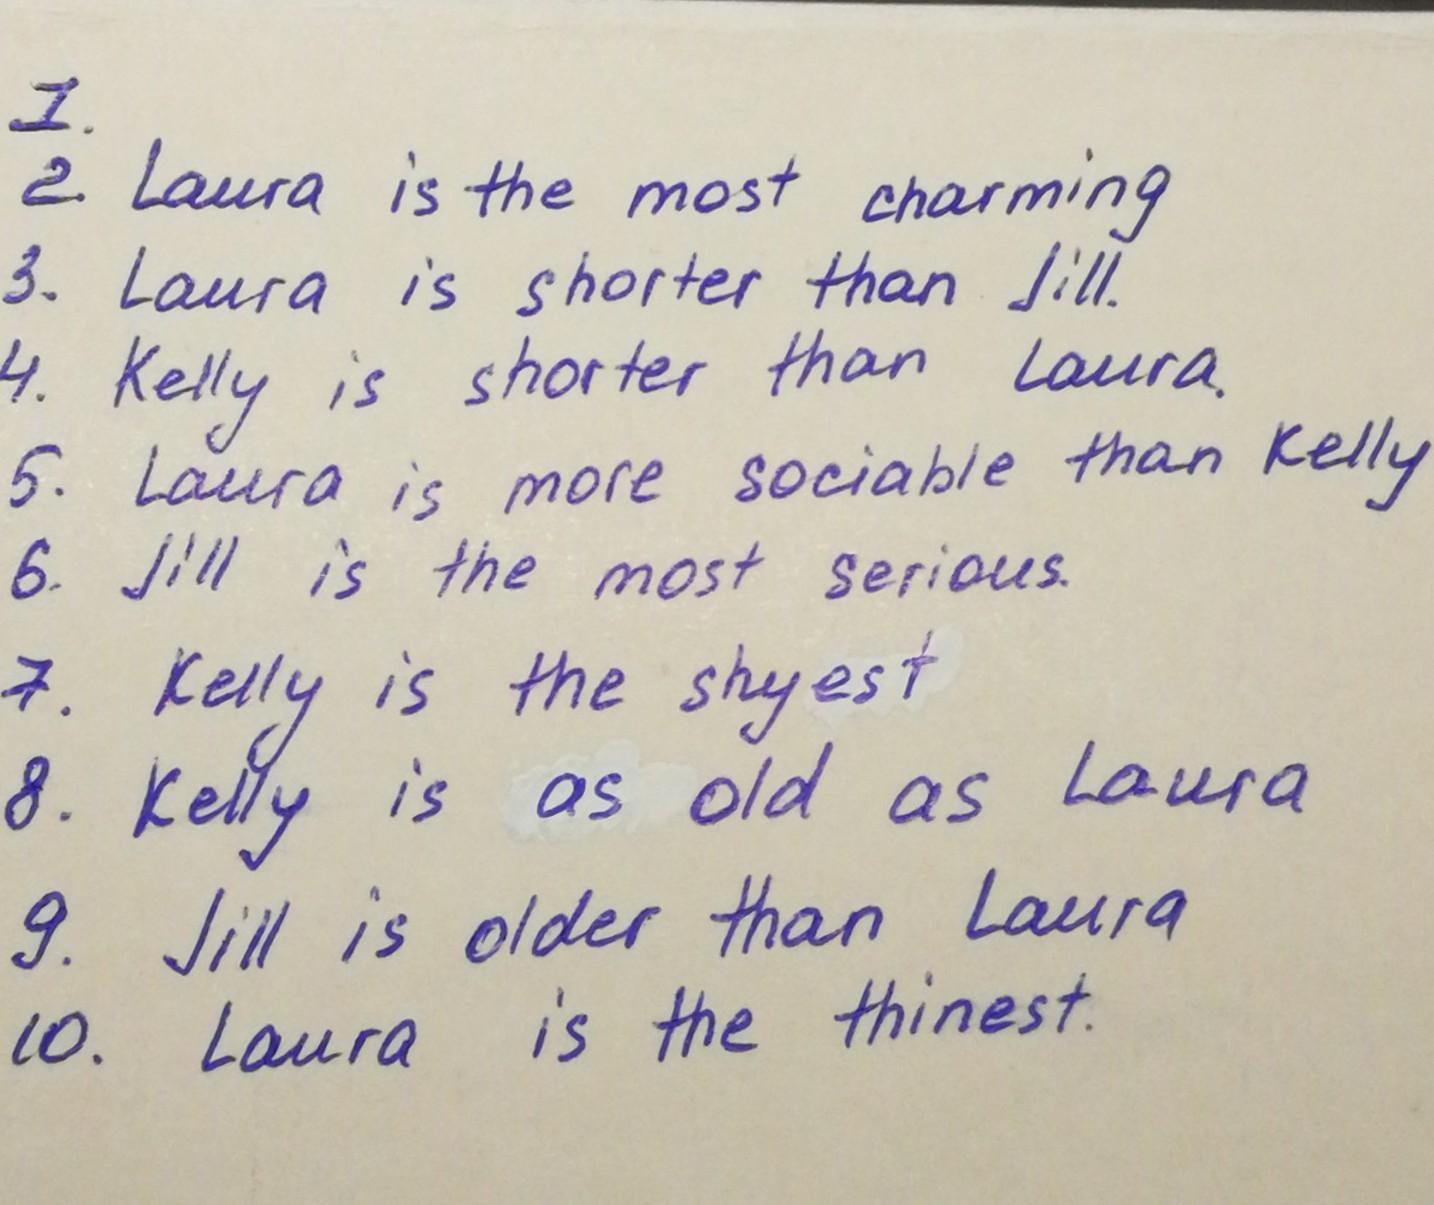 1.
2. Laura is the most charming
3. Laura is shorter than Jill.
4. Kelly is shorter than Laura.
5. Laura is more sociable than Kelly
6. Jill is the most serious.
7. Kelly is the shyest
8. Kelly is as old as Laura
9. Jill is older than Laura
10. Laura is the thinest.